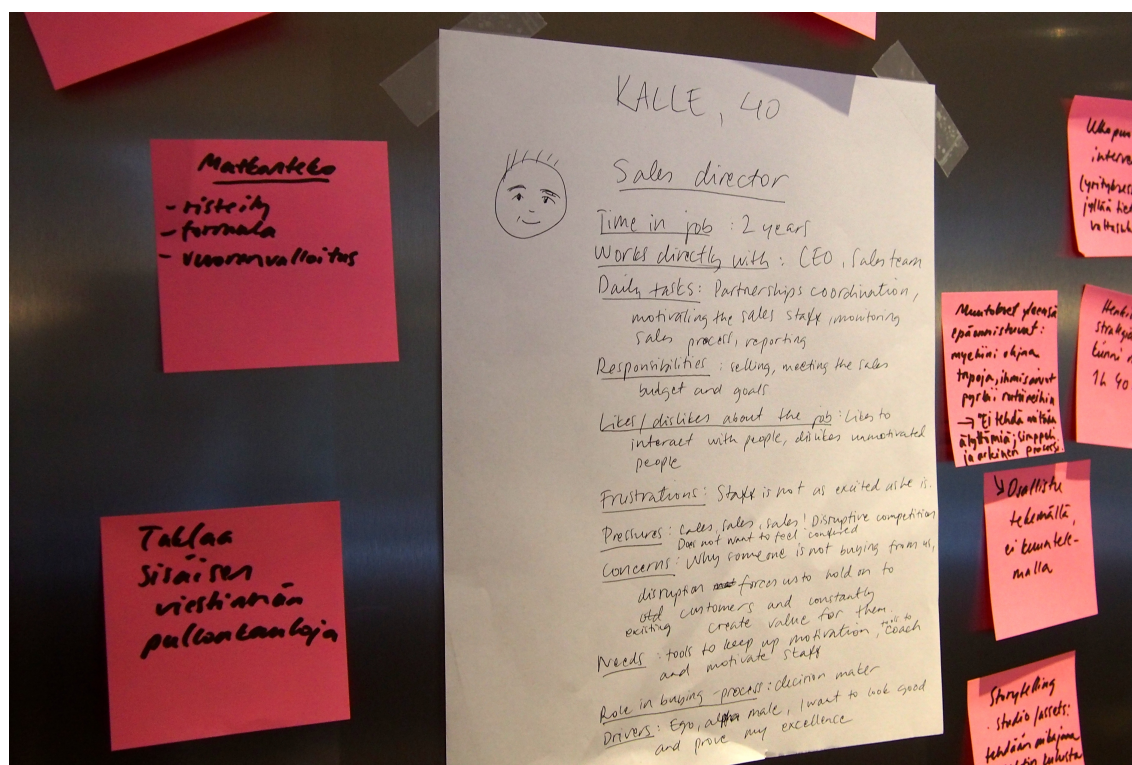 Matkanteko
- risteily
- formula
- vuorenvalloitus
Taklaa
sisäisen
viestinnän
pullonkauloja
KALLE, 40
Sales director
Time in job : 2 years
Works directly with : CEO, Sales team
Daily tasks: Partnerships coordination,
motivating the sales staff, monitoring
sales process, reporting
Responsibilities : selling, meeting the sales
budget and goals
Likes/dislikes about the job: Likes to
interact with people, dislikes unmotivated
people
Frustrations: Staff is not as excited as he is.
Pressures: Sales, sales, sales! Disruptive competition
Does not want to feel confused
Concerns: Why someone is not buying from us,
disruption forces us to hold on to
old customers and constantly
existing create value for them.
Needs : tools to keep up motivation, tools to coach
and motivate staff
Role in buying-process: decision maker
Drivers: Ego, alpha male, I want to look good
and prove my excellence
Muutokset yleensä
epäonnistuvat:
ohjaa
tapoja, ihmisaivot
pyrkii rutiineihin
→ "Ei tehdä mitään
älyttömiä; simppeli
ja arkinen prosessi.
Osallistu
tekemällä,
ei kuuntele-
malla
1h 40
Storytelling
studio/assets:
tehdään